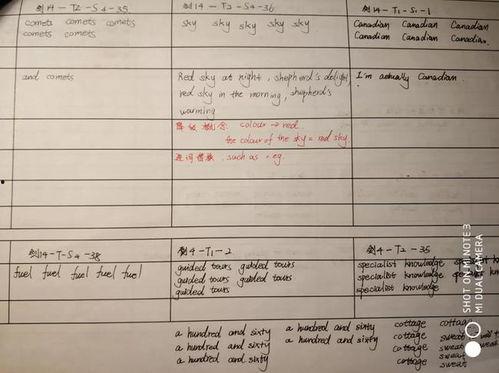 剑14-T2-S4-35
comets comets comets
comets comets
and comets
剑14-T2-S4-36
sky sky sky sky sky
Red sky at night, shepherd's delight
red sky in the morning, shupherd's
warming
colour → red
the colour of the sky = red sky
such as = eg.
剑14-T1-S1-1
Canadian Canadian Canadian
Canadian Canadian Canadian.
I'm actually Canadian.
剑14-T-S4-38
fuel fuel fuel fuel fuel
剑4-T1-2
guided tours guided tours
guided tours guided tours
guided tours
剑4-T2-35
specialist knowledge
specialist knowledge
specialist knowledge
a hundred and sixty a hundred and sixty
a hundred and sixty a hundred and sixty
a hundred and sixty
cottage cottage
cottage
cottage
cottage
SHOT ON MI NOTE 3
MI DUAL CAMERA